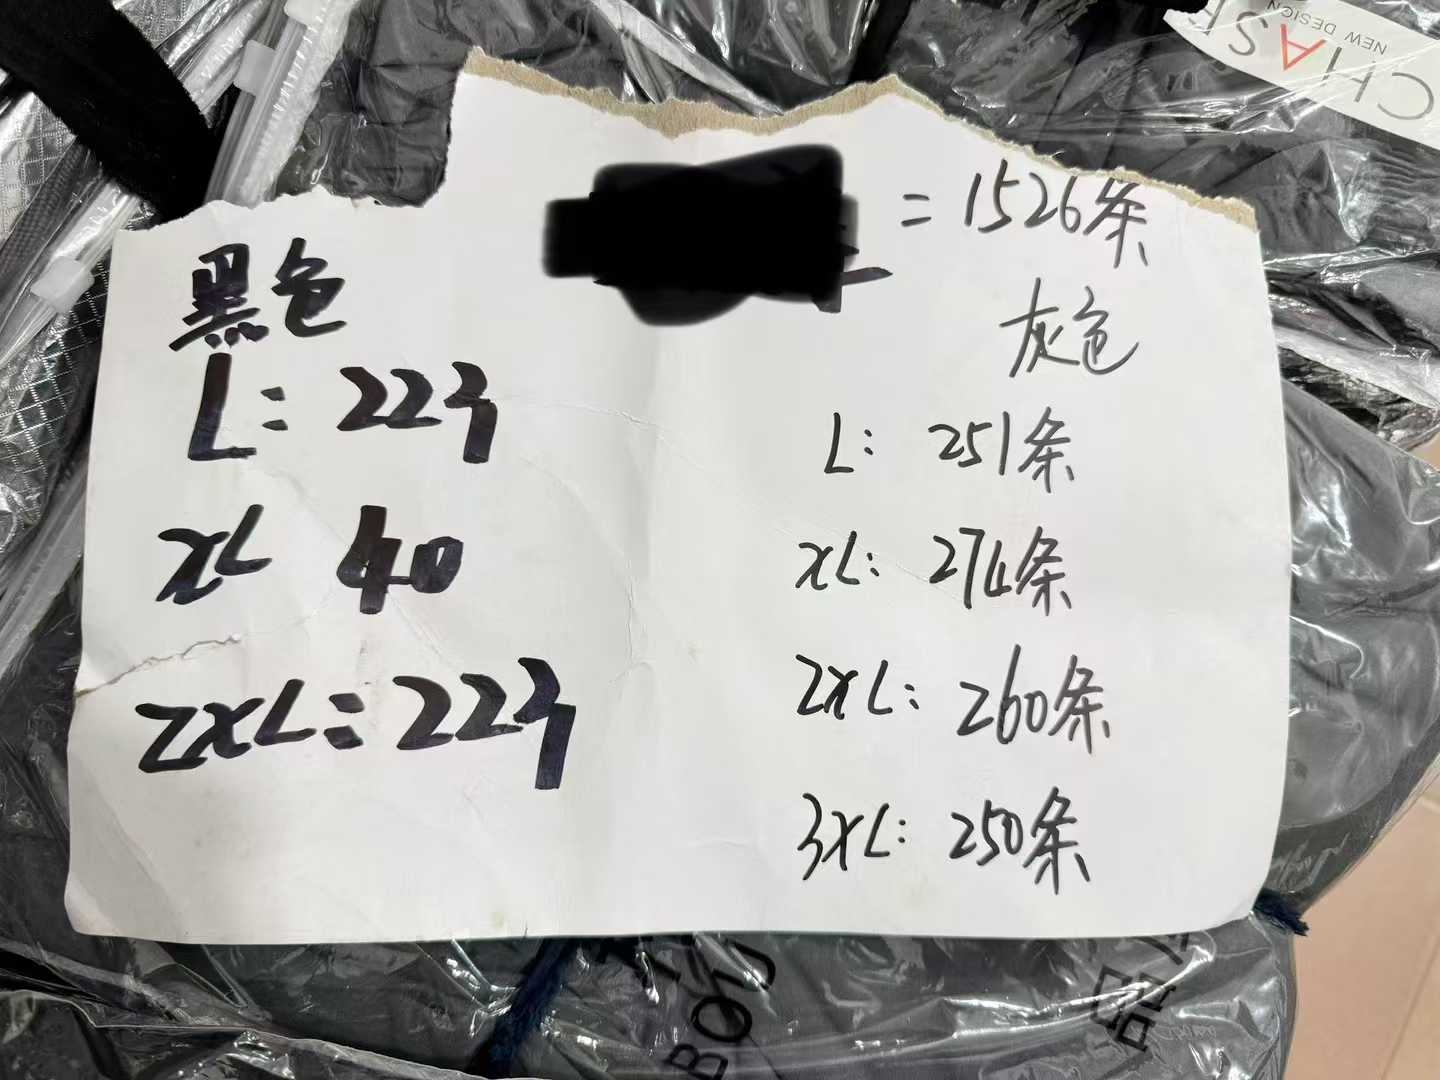 CHAS
NEW DESIGN
=1526条
黑色
L:223
XL 40
2XL:223
灰色
L:251条
XL:274条
2XL:260条
3XL:250条